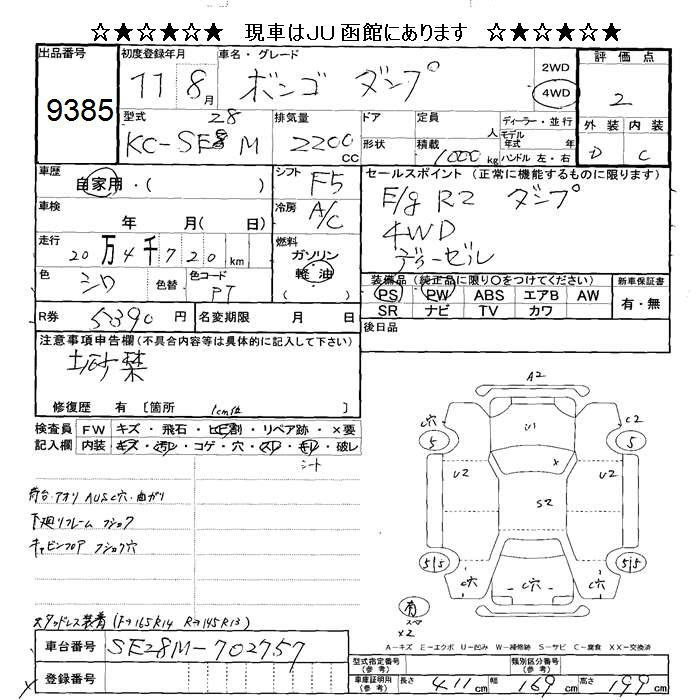 ☆★☆★☆★ 現車はJU函館にあります ★☆★☆★☆
出品番号 9385
初度登録年月 11 8月
車名・グレード ボンゴ ダンプ
2WD 4WD
評価点 2
外装 D 内装 C
型式 KC-SE28M
排気量 2200 cc
ドア 形状
定員 人
積載 1000 kg
ディーラー・並行
モデル年式 年式
ハンドル 左・右
車歴 自家用・( )
シフト F5
冷房 A/C
セールスポイント (正常に機能するものに限ります)
E/g R2 ダンプ
4WD
ディーゼル
車検 年 月 ( 日)
走行 20万4千720km
燃料 ガソリン 軽油 ( )
色 シロ 色替 色コード PT
装備品 (純正品に限り○をつけてください)
PS PW ABS エアB AW
SR ナビ TV カワ
新車保証書 有・無
R券 5390円 名変期限 月 日
後日品
注意事項申告欄 (不具合内容等は具体的に記入して下さい)
土砂禁
修復歴 有 [箇所 ]
検査員記入欄
FW キズ・飛石・ヒビ割・リペア跡・×要
内装 キズ・汚レ・コゲ・穴・スレ・キレ・破レ
シート
荷台・アオリ AUSC穴・曲ガリ
下廻リフレーム フショク
キャビンフロア フショク穴
スタッドレス装着 (F→165R14 R→145R13)
A2
C穴 U1 C2
5 5
U2 × U2
S2
5|5 5|5
C穴 C穴 C穴
有 スペア
×2
A-キズ E-エクボ U-凹み W-補修跡 S-サビ C-腐食 XX-交換済
車台番号 SE28M-702757
登録番号
型式指定番号 (参考) 類別区分番号 (参考)
車庫証明用 (参考) 長さ 411cm 幅 169cm 高さ 199cm